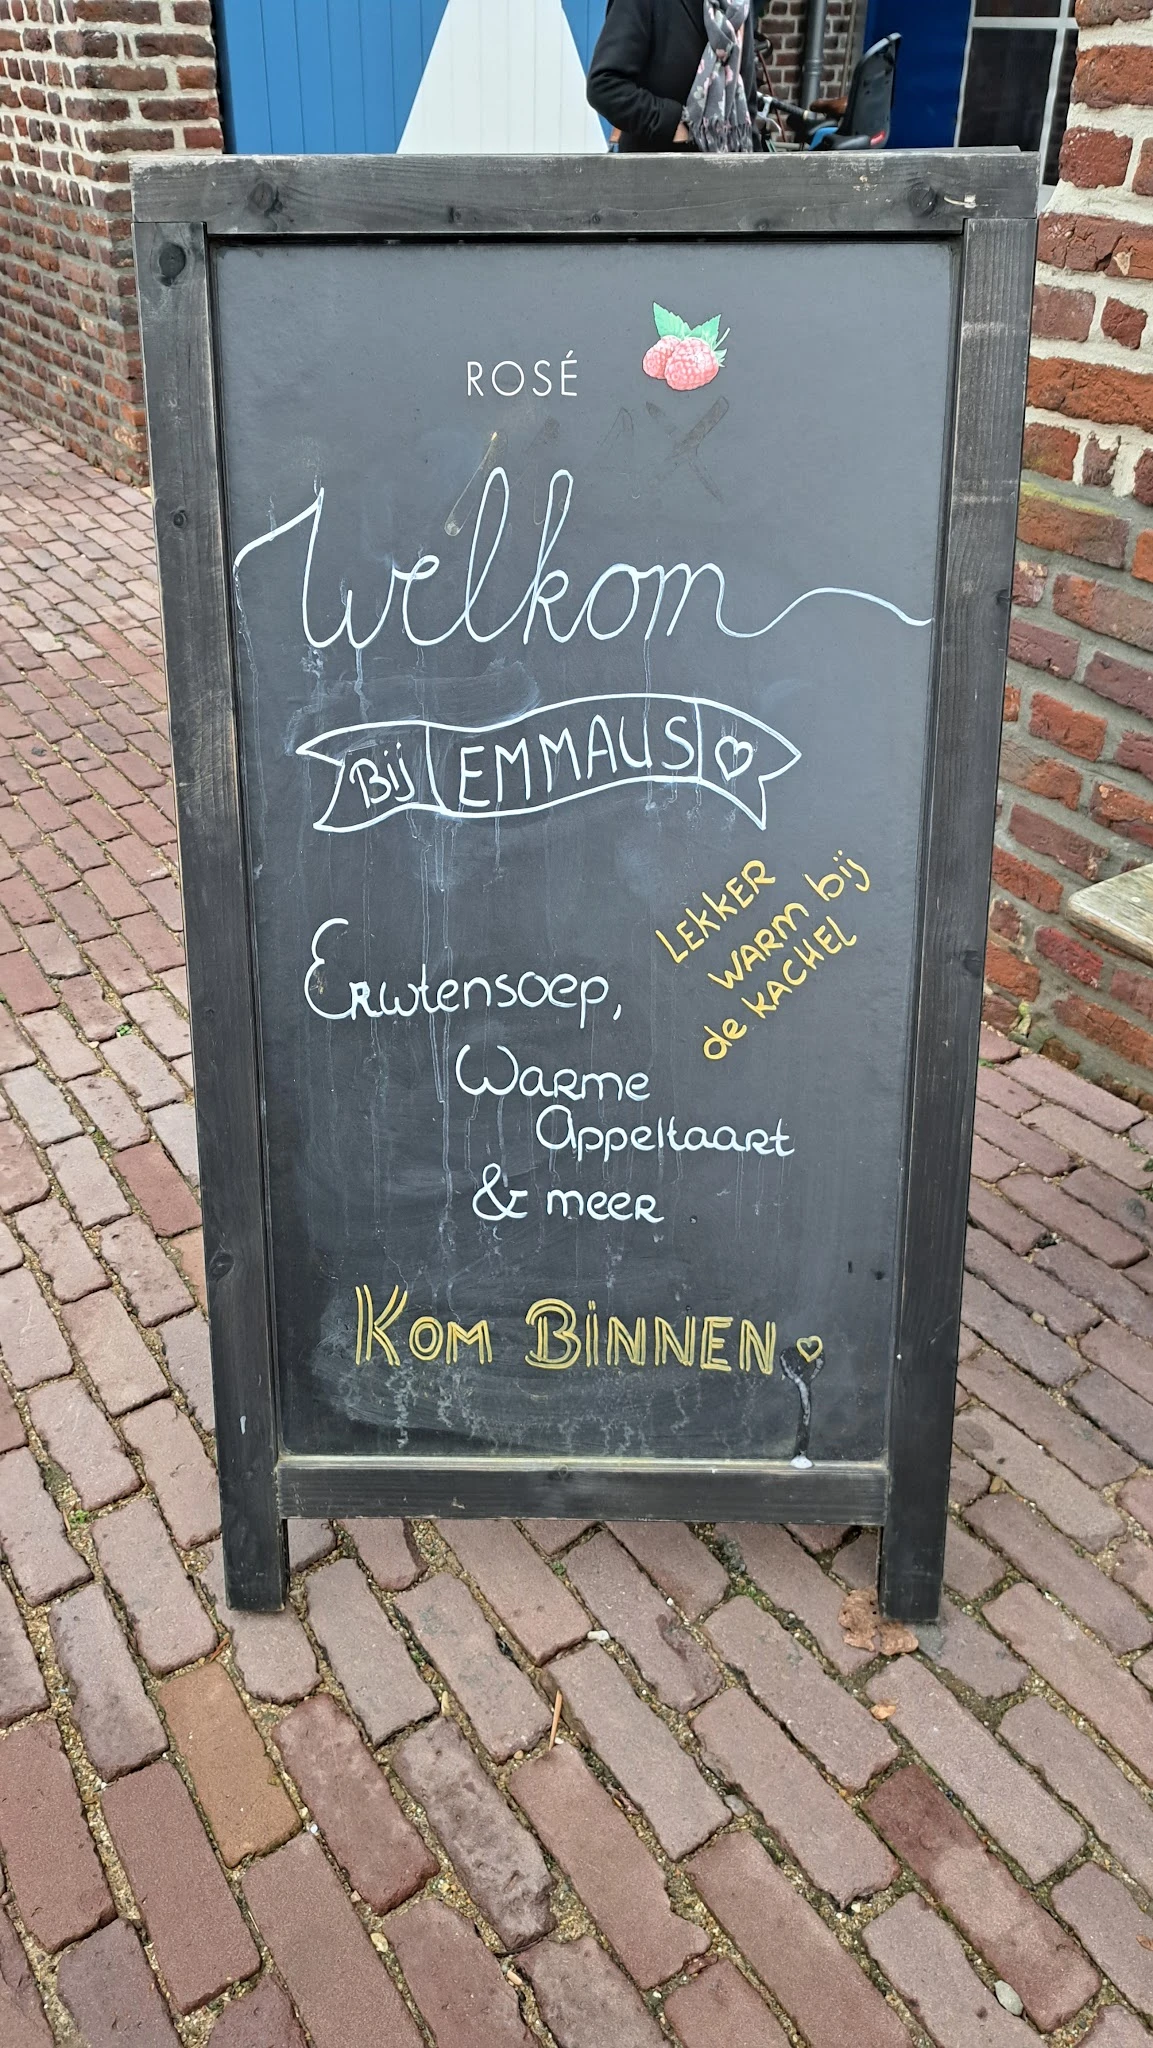 ROSÉ
Welkom
Bij EMMAUS
LEKKER
WARM bij
de KACHEL
Erwtensoep,
Warme
Appeltaart
& meer
KOM BINNEN